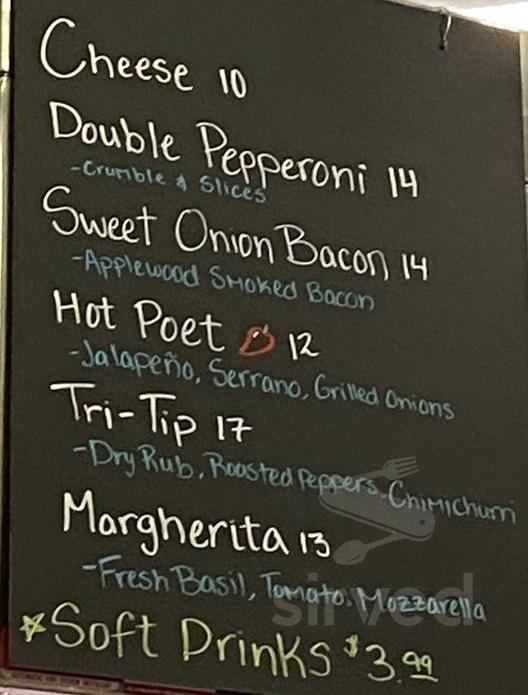 Cheese 10
Double Pepperoni 14
-Crumble & Slices
Sweet Onion Bacon 14
-Applewood Smoked Bacon
Hot Poet 12
-Jalapeño, Serrano, Grilled Onions
Tri-Tip 17
-Dry Rub, Roasted Peppers, Chimichurri
Margherita 13
-Fresh Basil, Tomato, Mozzarella
sirved
Soft Drinks $3.99